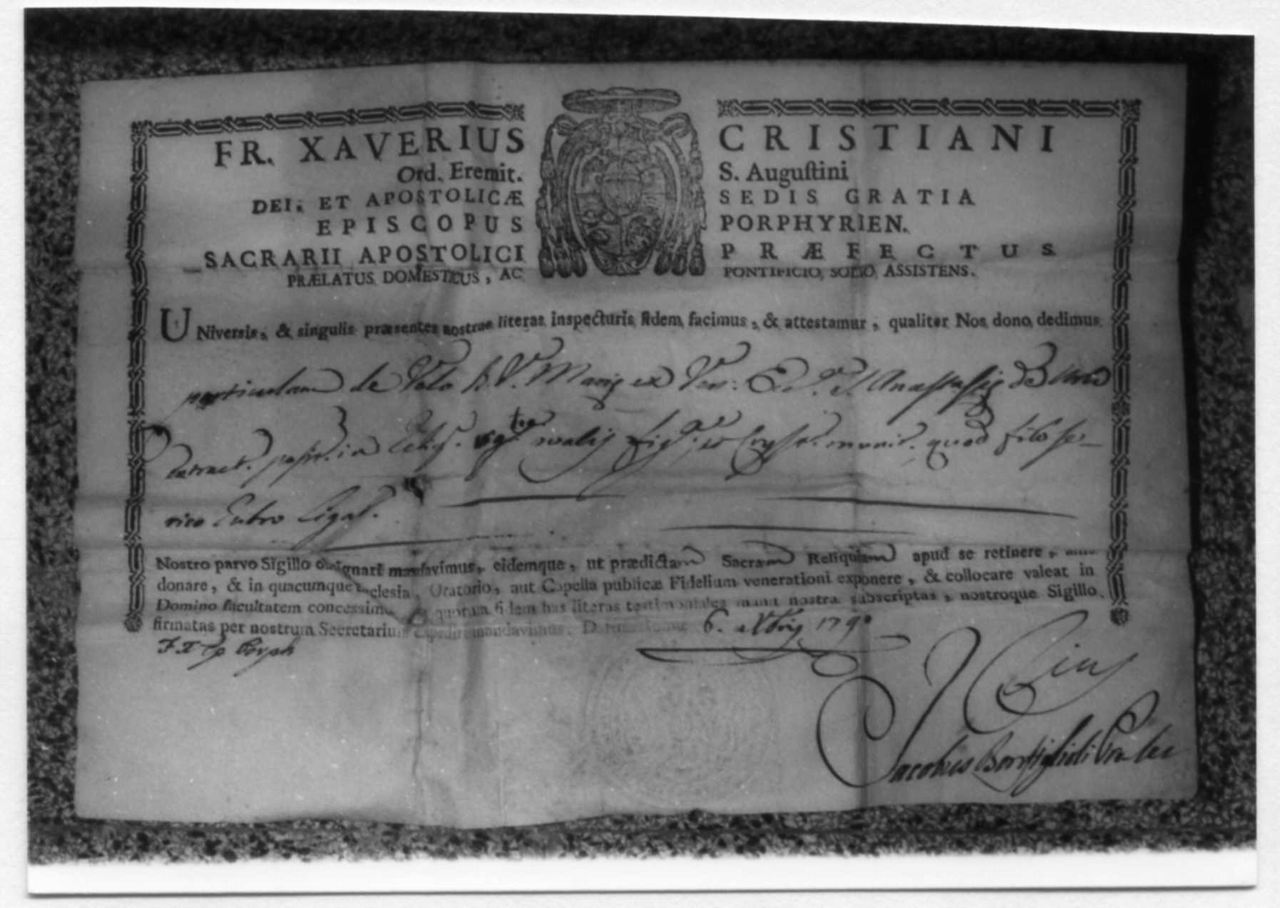 FR. XAVERIUS CRISTIANI
Ord. Eremit. S. Augustini
DEI, ET APOSTOLICÆ SEDIS GRATIA
EPISCOPUS PORPHYRIEN.
SACRARII APOSTOLICI PRÆFECTUS
PRÆLATUS DOMESTICUS, AC PONTIFICIO SOLIO ASSISTENS.
UNiversis, & singulis præsentes nostras literas inspecturis fidem facimus, & attestamur, qualiter Nos dono dedimus
particulam de Velo B. V. Mariæ ex Ven: S. Anastasiæ
extract. in ovalis quod filo se-
rico rubro ligat.
Nostro parvo Sigillo consignari mandavimus, eidemque, ut prædictam Sacram Reliquiam apud se retinere, aliis
donare, & in quacumque Ecclesia, Oratorio, aut Capella publicæ Fidelium venerationi exponere, & collocare valeat in
Domino facultatem concessimus quorum fidem has literas testimoniales manu nostra subscriptas, nostroque Sigillo
firmatas per nostrum Secretarium expediri mandavimus. 6. 1790
F. X. Ep Porph
Jacobus